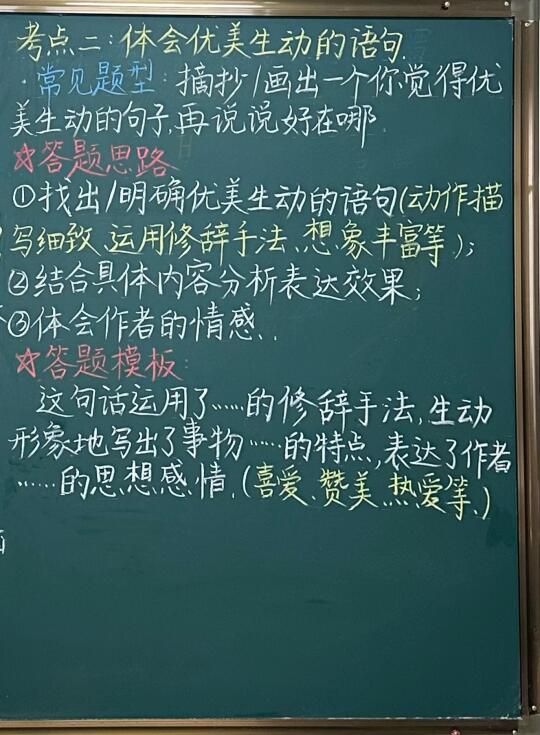 考点二:体会优美生动的语句.
·常见题型:摘抄/画出一个你觉得优
美生动的句子,再说说好在哪.
☆答题思路
①找出/明确优美生动的语句(动作描
写细致、运用修辞手法、想象丰富等);
②结合具体内容分析表达效果;
③体会作者的情感.
☆答题模板:
这句话运用了……的修辞手法,生动
形象地写出了事物……的特点,表达了作者
……的思想感情.(喜爱、赞美、热爱等.)